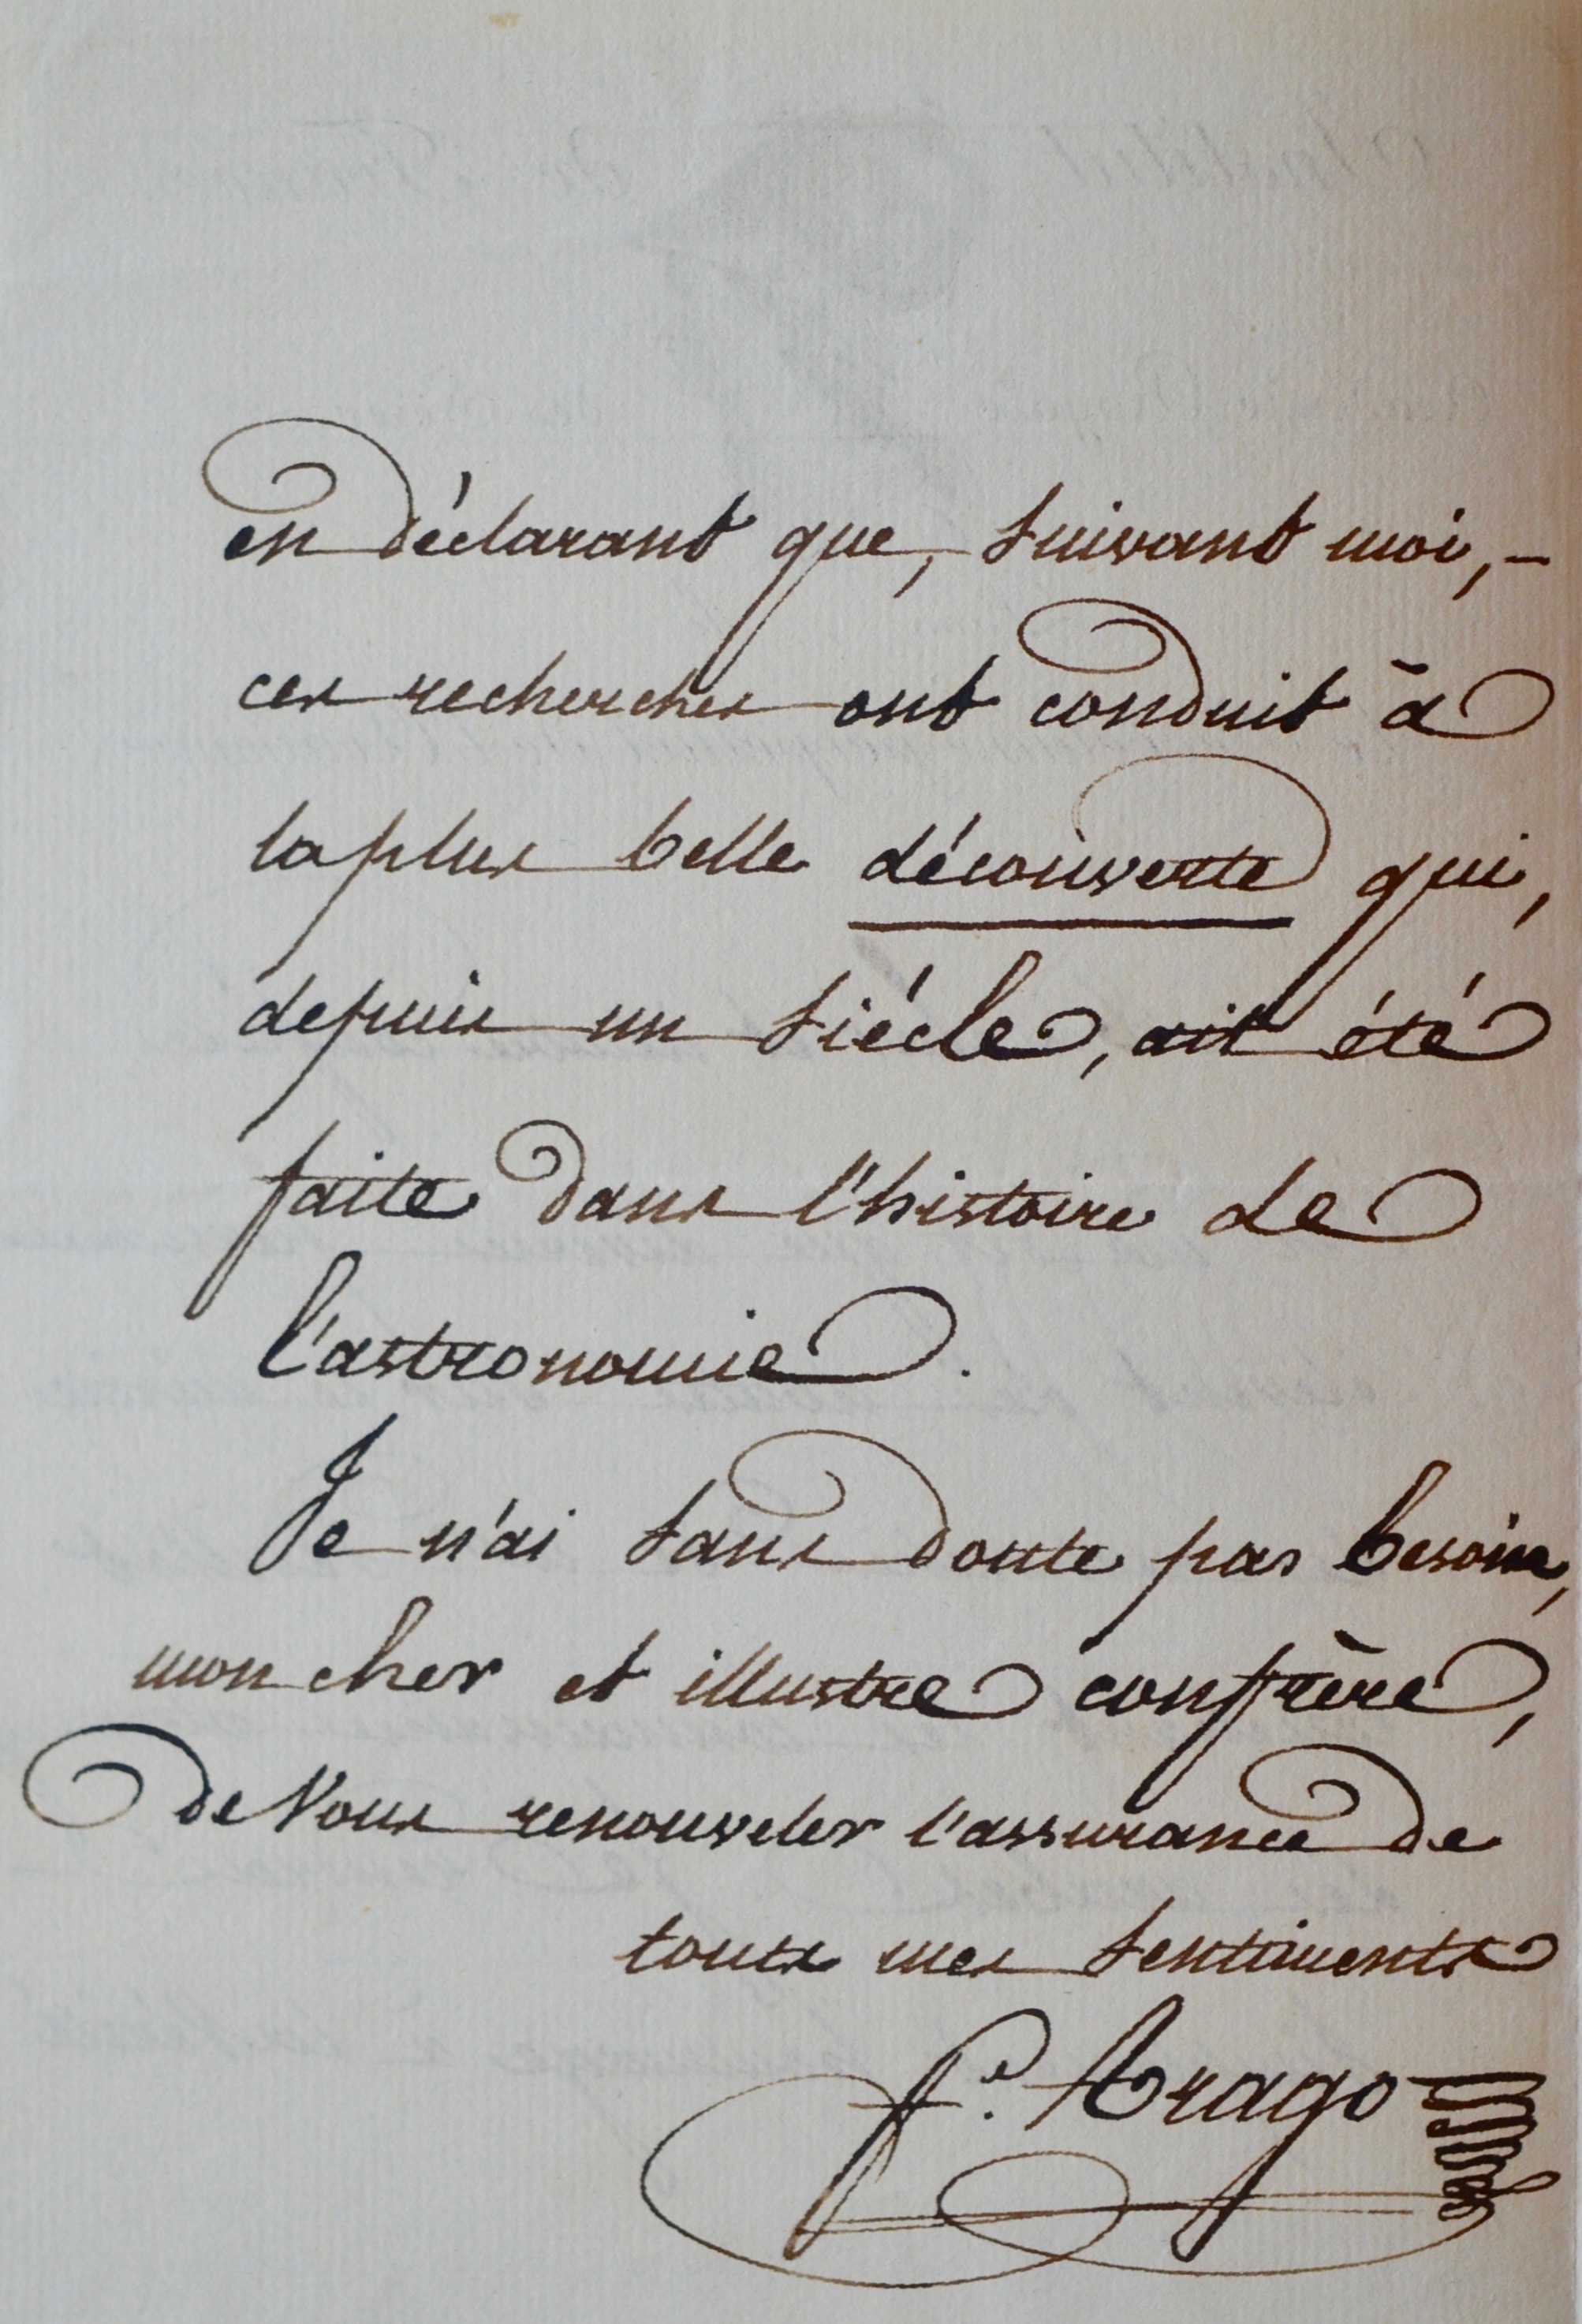 en déclarant que, suivant moi, -
ces recherches ont conduit à
la plus belle découverte qui,
depuis un siécle, ait été
faite dans l'histoire de
l'astronomie.
Je n'ai sans doute pas besoin,
mon cher et illustre confrère,
de Vous renouveler l'assurance de
touts mes sentiments
f. Arago